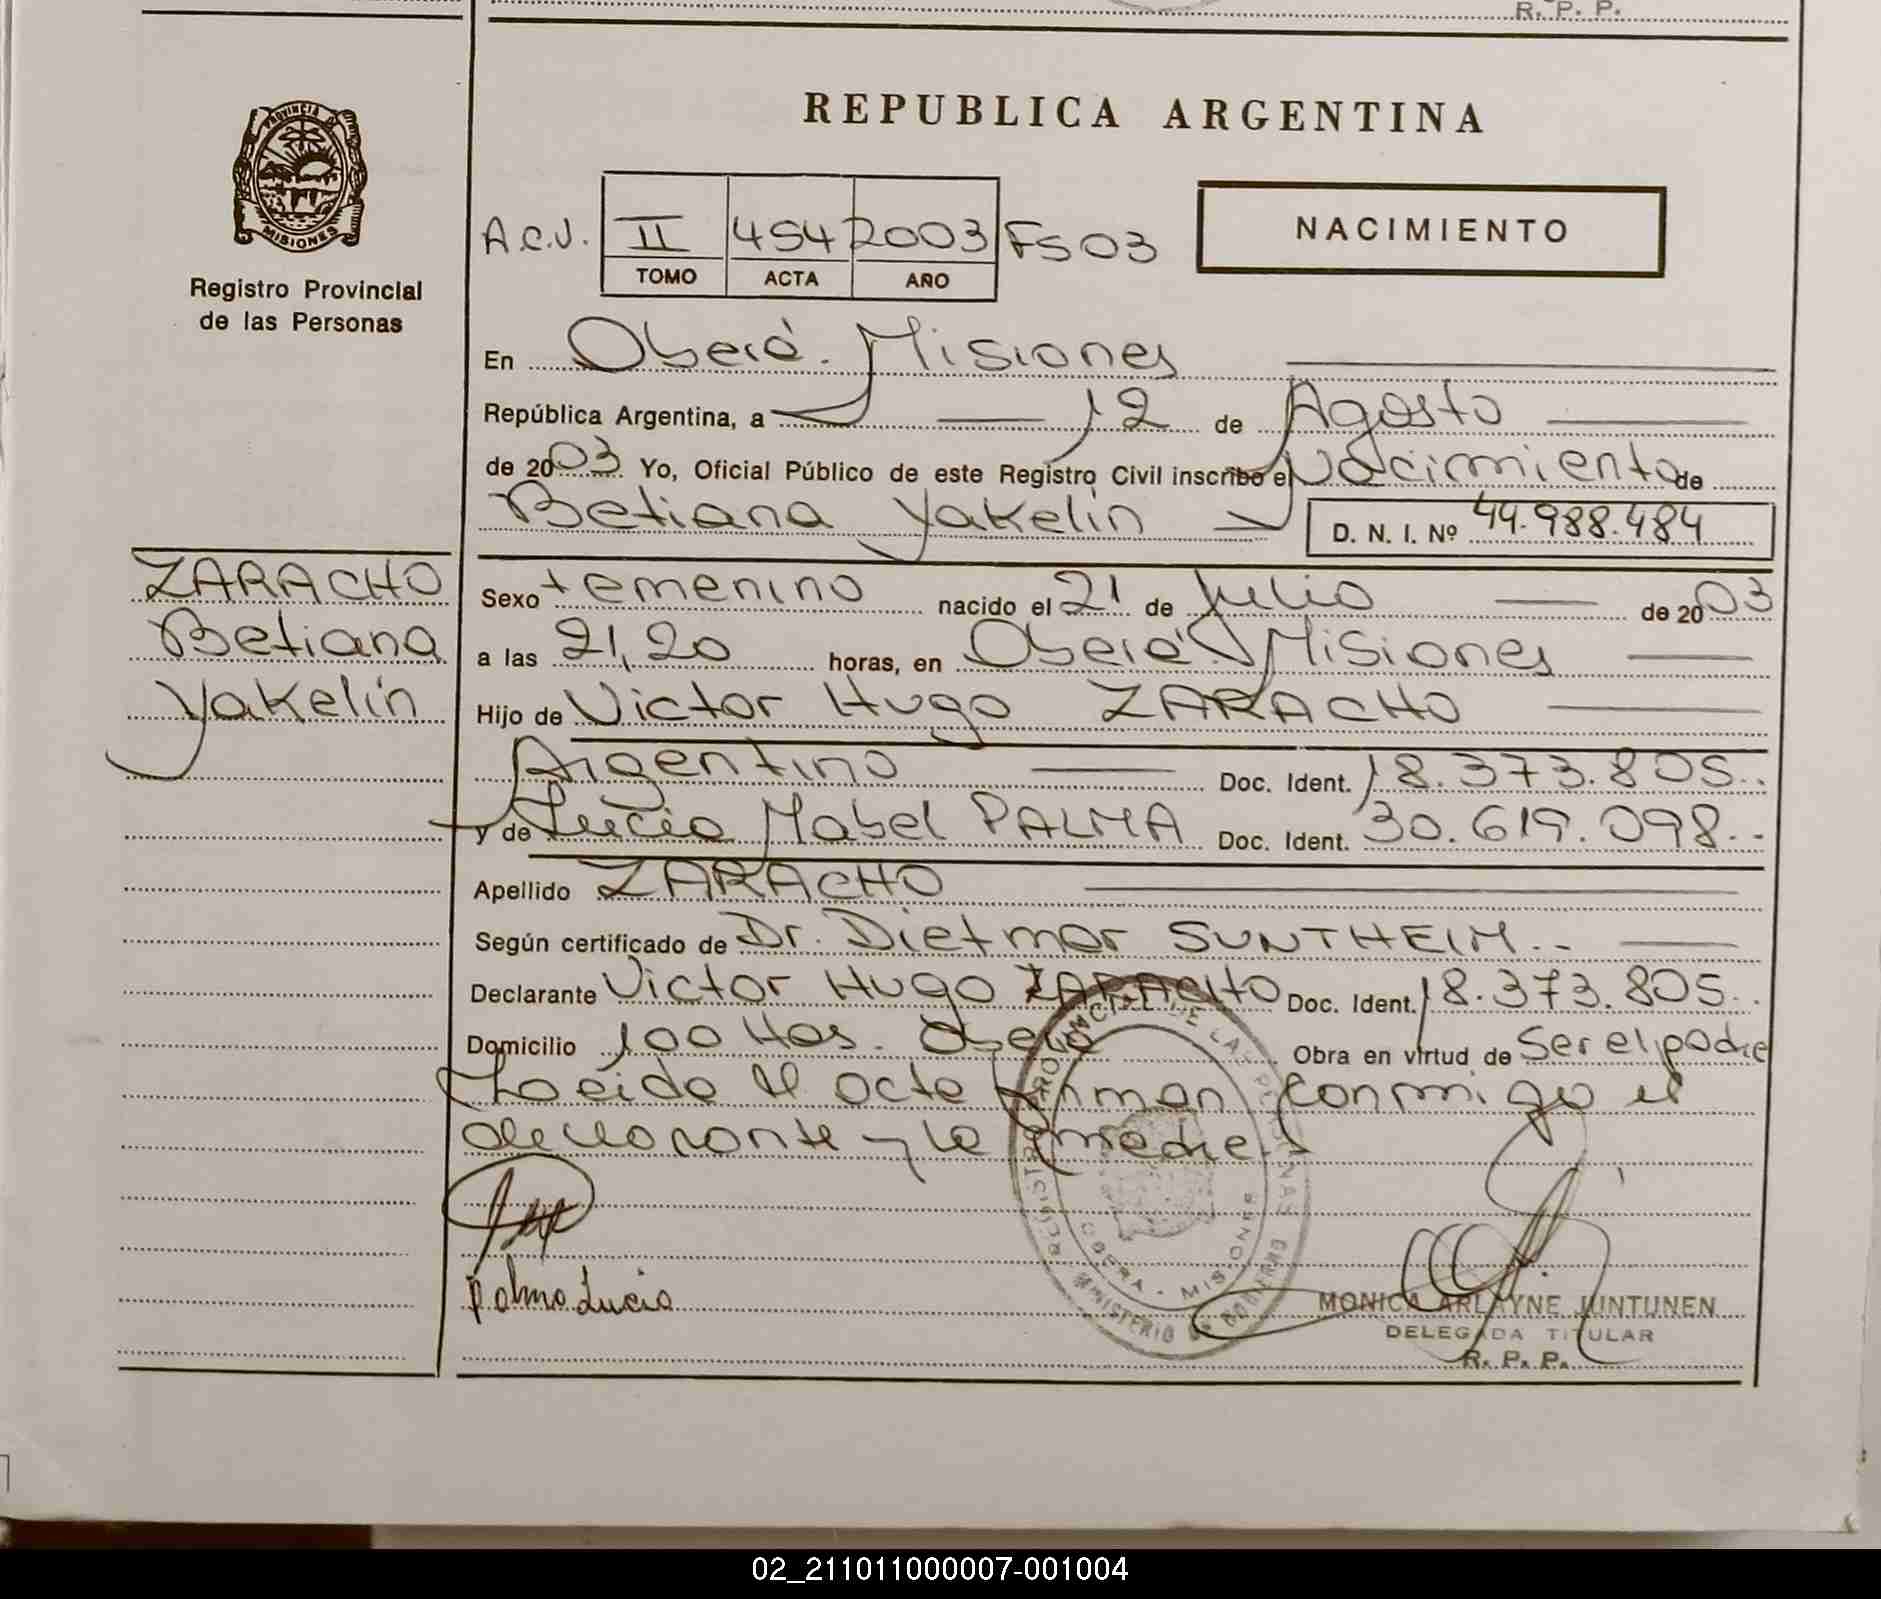 R. P. P.
PROVINCIA DE
MISIONES
Registro Provincial
de las Personas
REPUBLICA ARGENTINA
A.C.J. II 454 2003 FS03
TOMO ACTA AÑO
NACIMIENTO
En Oberá. Misiones
República Argentina, a 12 de Agosto
de 2003 Yo, Oficial Público de este Registro Civil inscribo el Nacimiento de
Betiana Yakelin D. N. I. Nº 44.988.484
ZARACHO
Betiana
Yakelin
Sexo Femenino nacido el 21 de Julio de 2003
a las 21,20 horas, en Oberá. Misiones
Hijo de Victor Hugo ZARACHO
Argentino Doc. Ident. 18.373.805..
y de Lucia Mabel PALMA Doc. Ident. 30.619.098..
Apellido ZARACHO
Según certificado de Dr. Dietmar SUNTHEIM..
Declarante Victor Hugo ZARACHO Doc. Ident. 18.373.805..
Domicilio 100 Has. Oberá Obra en virtud de Ser el padre
Leída el acta firman conmigo el
declarante y la madre
REGISTRO PROVINCIAL DE LAS PERSONAS
OBERA - MISIONES
MINISTERIO DE GOBIERNO
Palma Lucia
MONICA ARLAYNE JUNTUNEN
DELEGADA TITULAR
R. P. P.
02_211011000007-001004